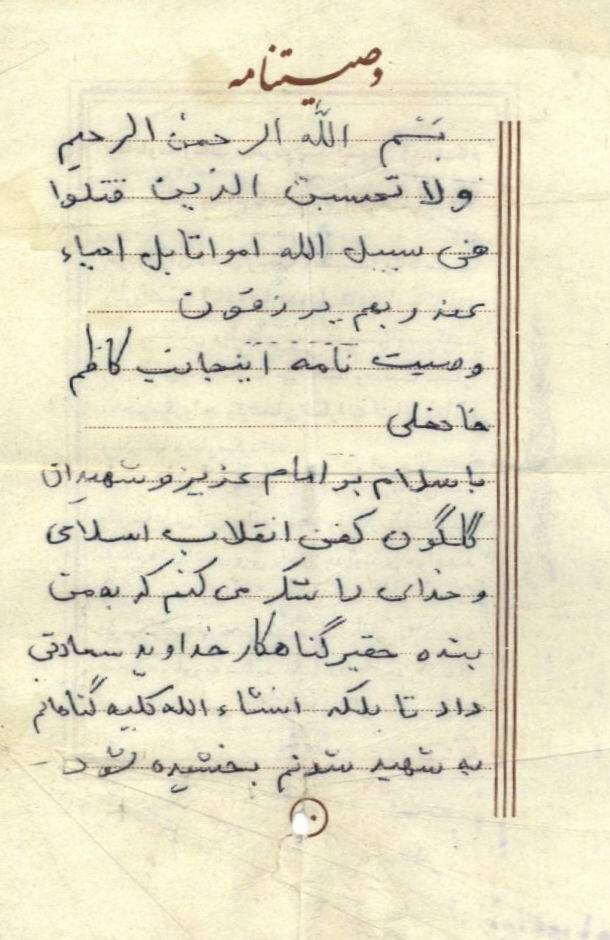 وصیتنامه
بسم الله الرحمن الرحیم
ولا تحسبن الذین قتلوا
فی سبیل الله امواتا بل احیاء
عند ربهم یرزقون
وصیت نامه اینجانب کاظم
خادخلی
با سلام بر امام عزیز و شهیدان
گلگون کفن انقلاب اسلامی
و خدای را شکر می کنم که به من
بنده حقیر گناهکار خداوند سعادتی
داد تا بلکه انشاء الله کلیه گناهانم
به شهید شدنم بخشیده شود